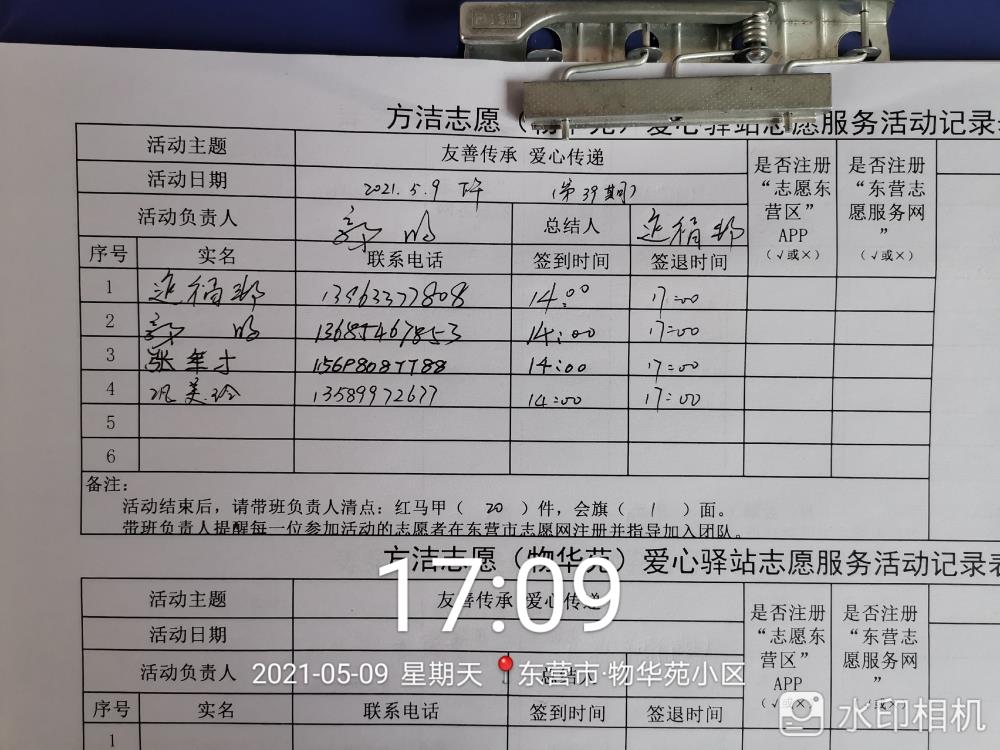 方洁志愿（物华苑）爱心驿站志愿服务活动记录表
活动主题 友善传承 爱心传递 是否注册“志愿东营区”APP（√或×） 是否注册“东营志愿服务网”（√或×）
活动日期 2021.5.9 下午 （第39期）
活动负责人 郭 鸣 总结人
序号 实名 联系电话 签到时间 签退时间
1 13963377808 14:00 17:00
2 郭 鸣 13685467853 14:00 17:00
3 张年才 15698087788 14:00 17:00
4 巩美玲 13589972677 14:00 17:00
5
6
备注：
活动结束后，请带班负责人清点：红马甲（ 20 ）件，会旗（ 1 ）面。
带班负责人提醒每一位参加活动的志愿者在东营市志愿网注册并指导加入团队。
方洁志愿（物华苑）爱心驿站志愿服务活动记录表
17:09
活动主题 友善传承 爱心传递 是否注册“志愿东营区”APP（√或×） 是否注册“东营志愿服务网”（√或×）
活动日期
活动负责人 总结人
2021-05-09 星期天 东营市·物华苑小区
序号 实名 联系电话 签到时间 签退时间
水印相机
1